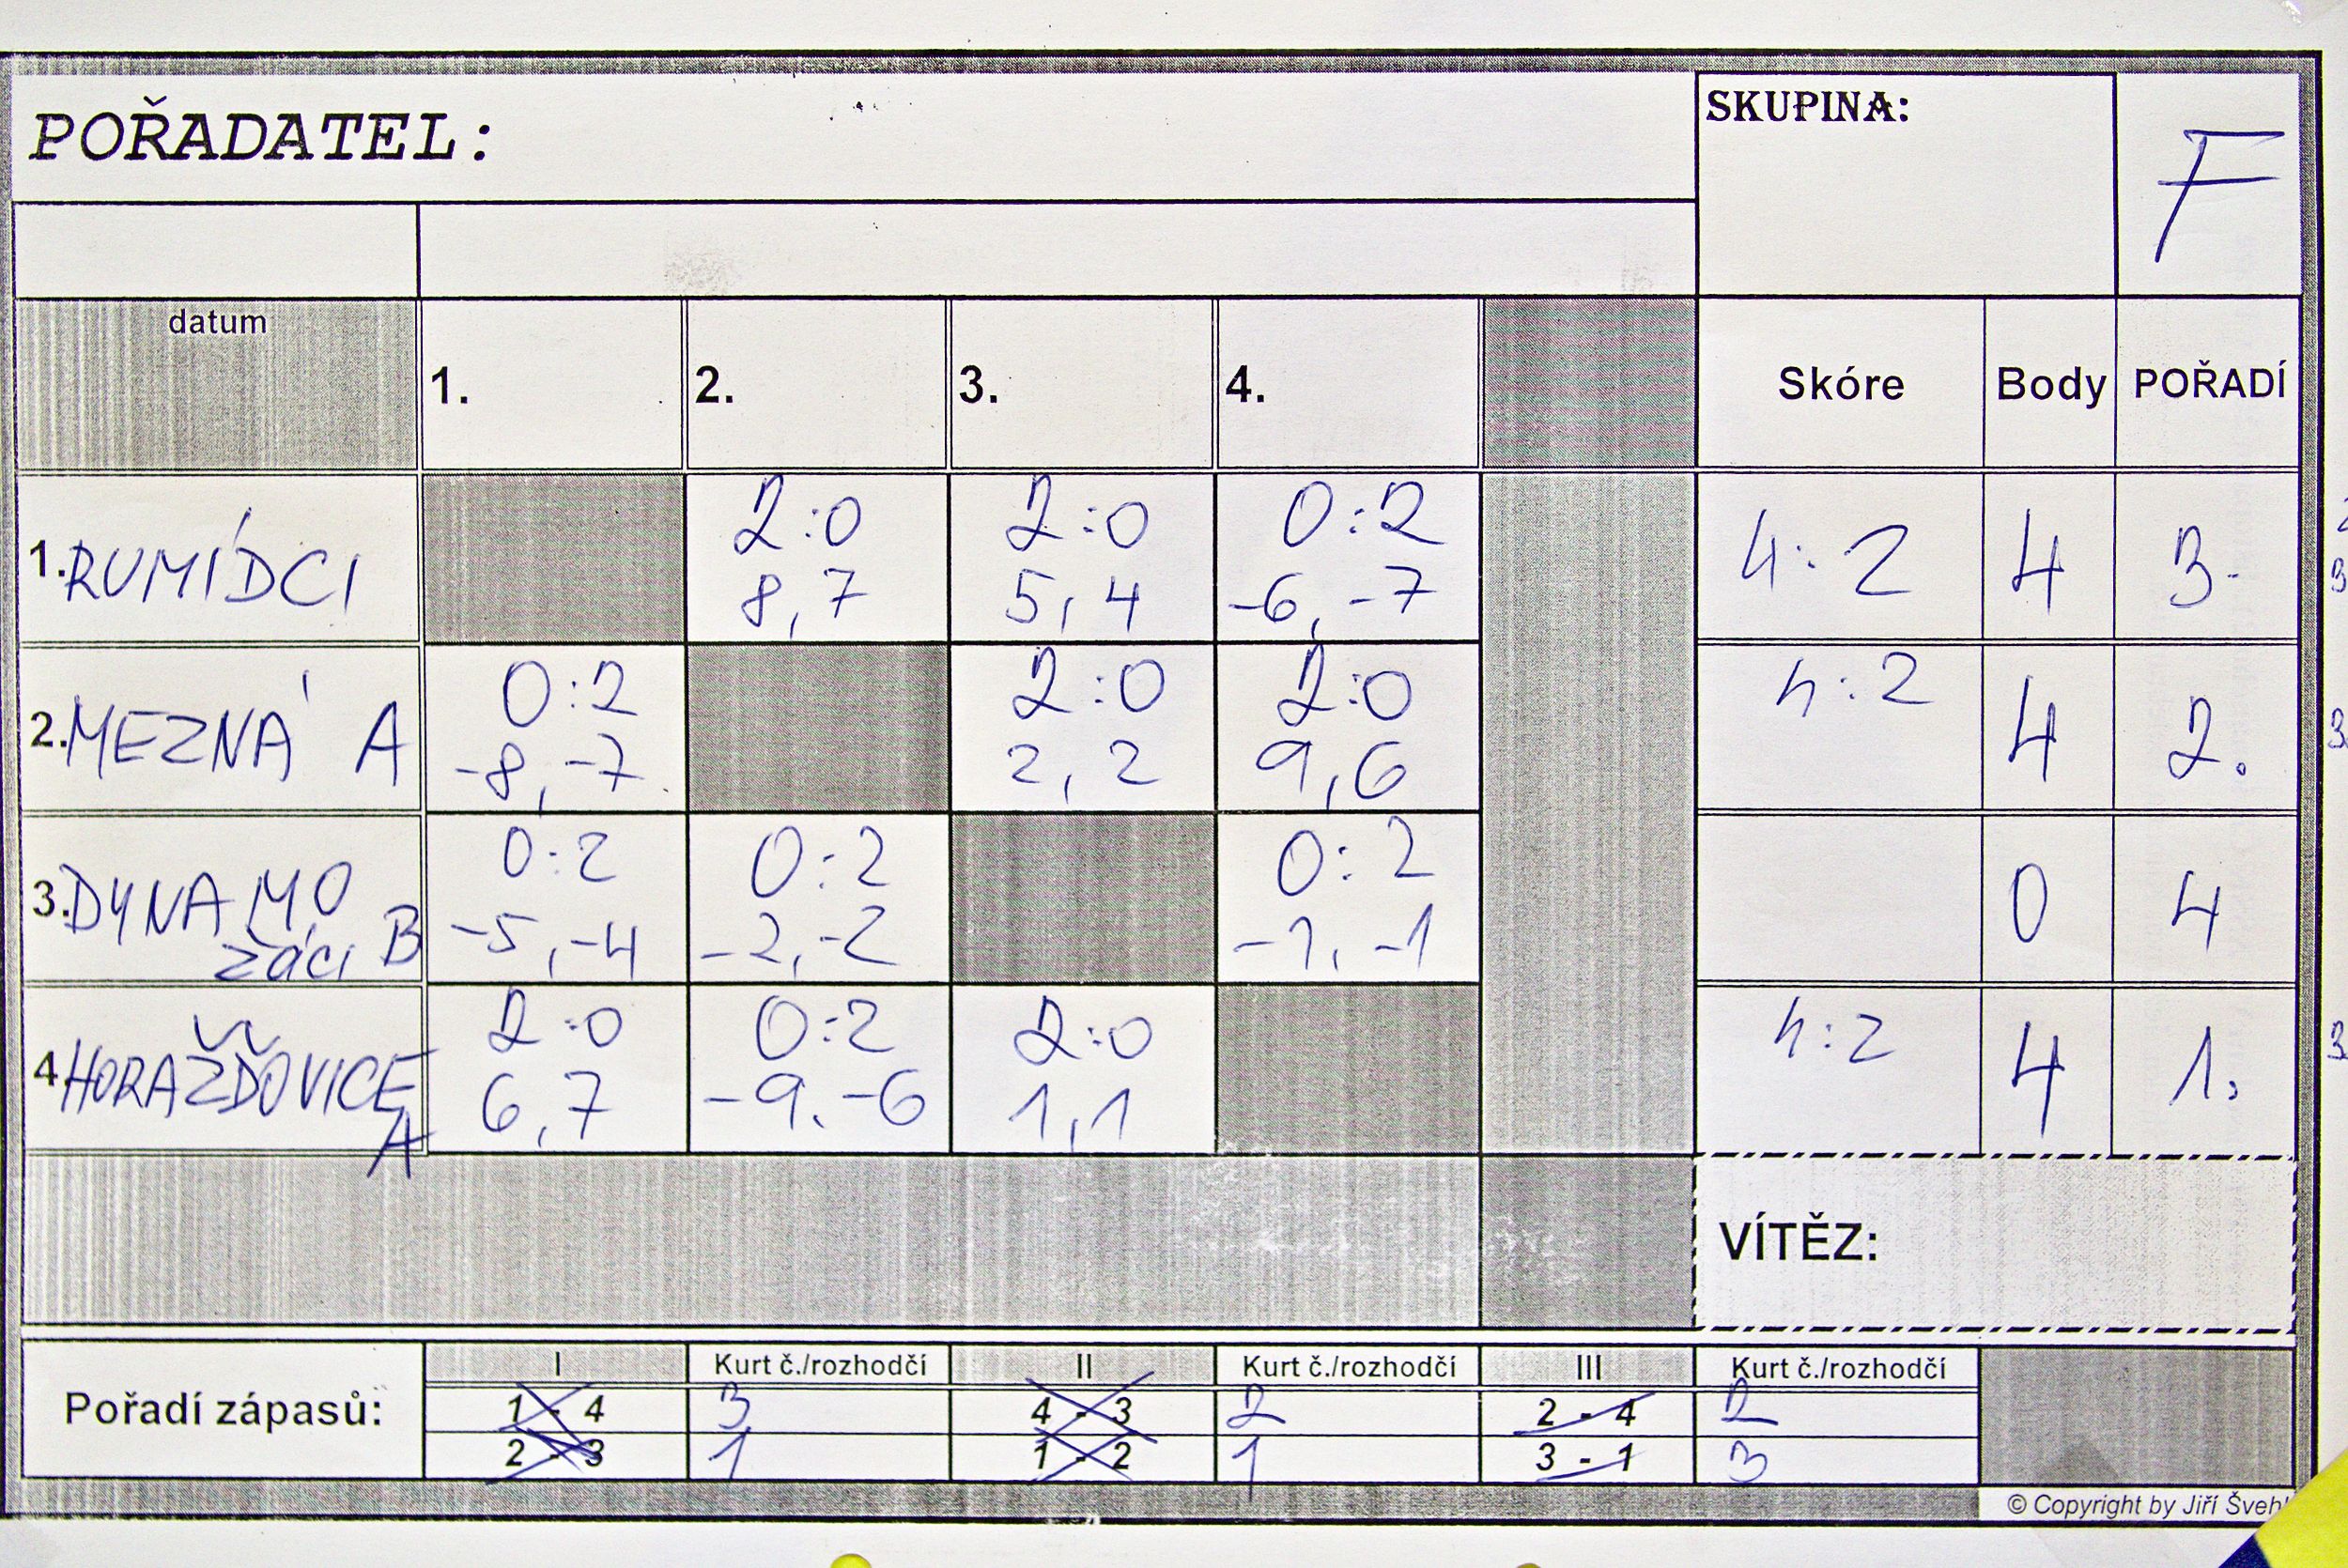 POŘADATEL:
SKUPINA:
F
datum
1.
2.
3.
4.
Skóre
Body
POŘADÍ
1. RUMÍDCI
2:0
8,7
2:0
5,4
0:2
-6,-7
4:2
4
3.
2. MEZNÁ A
0:2
-8,-7
2:0
2,2
2:0
9,6
4:2
4
2.
3. DYNAMO
žáci B
0:2
-5,-4
0:2
-2,-2
0:2
-1,-1
0
4
4 HORAŽĎOVICE
A
2:0
6,7
0:2
-9.-6
2:0
1,1
4:2
4
1.
VÍTĚZ:
Pořadí zápasů:
I
Kurt č./rozhodčí
II
Kurt č./rozhodčí
III
Kurt č./rozhodčí
1 - 4
3
4 - 3
2
2 - 4
2
2 - 3
1
1 - 2
1
3 - 1
3
© Copyright by Jiří Švehl